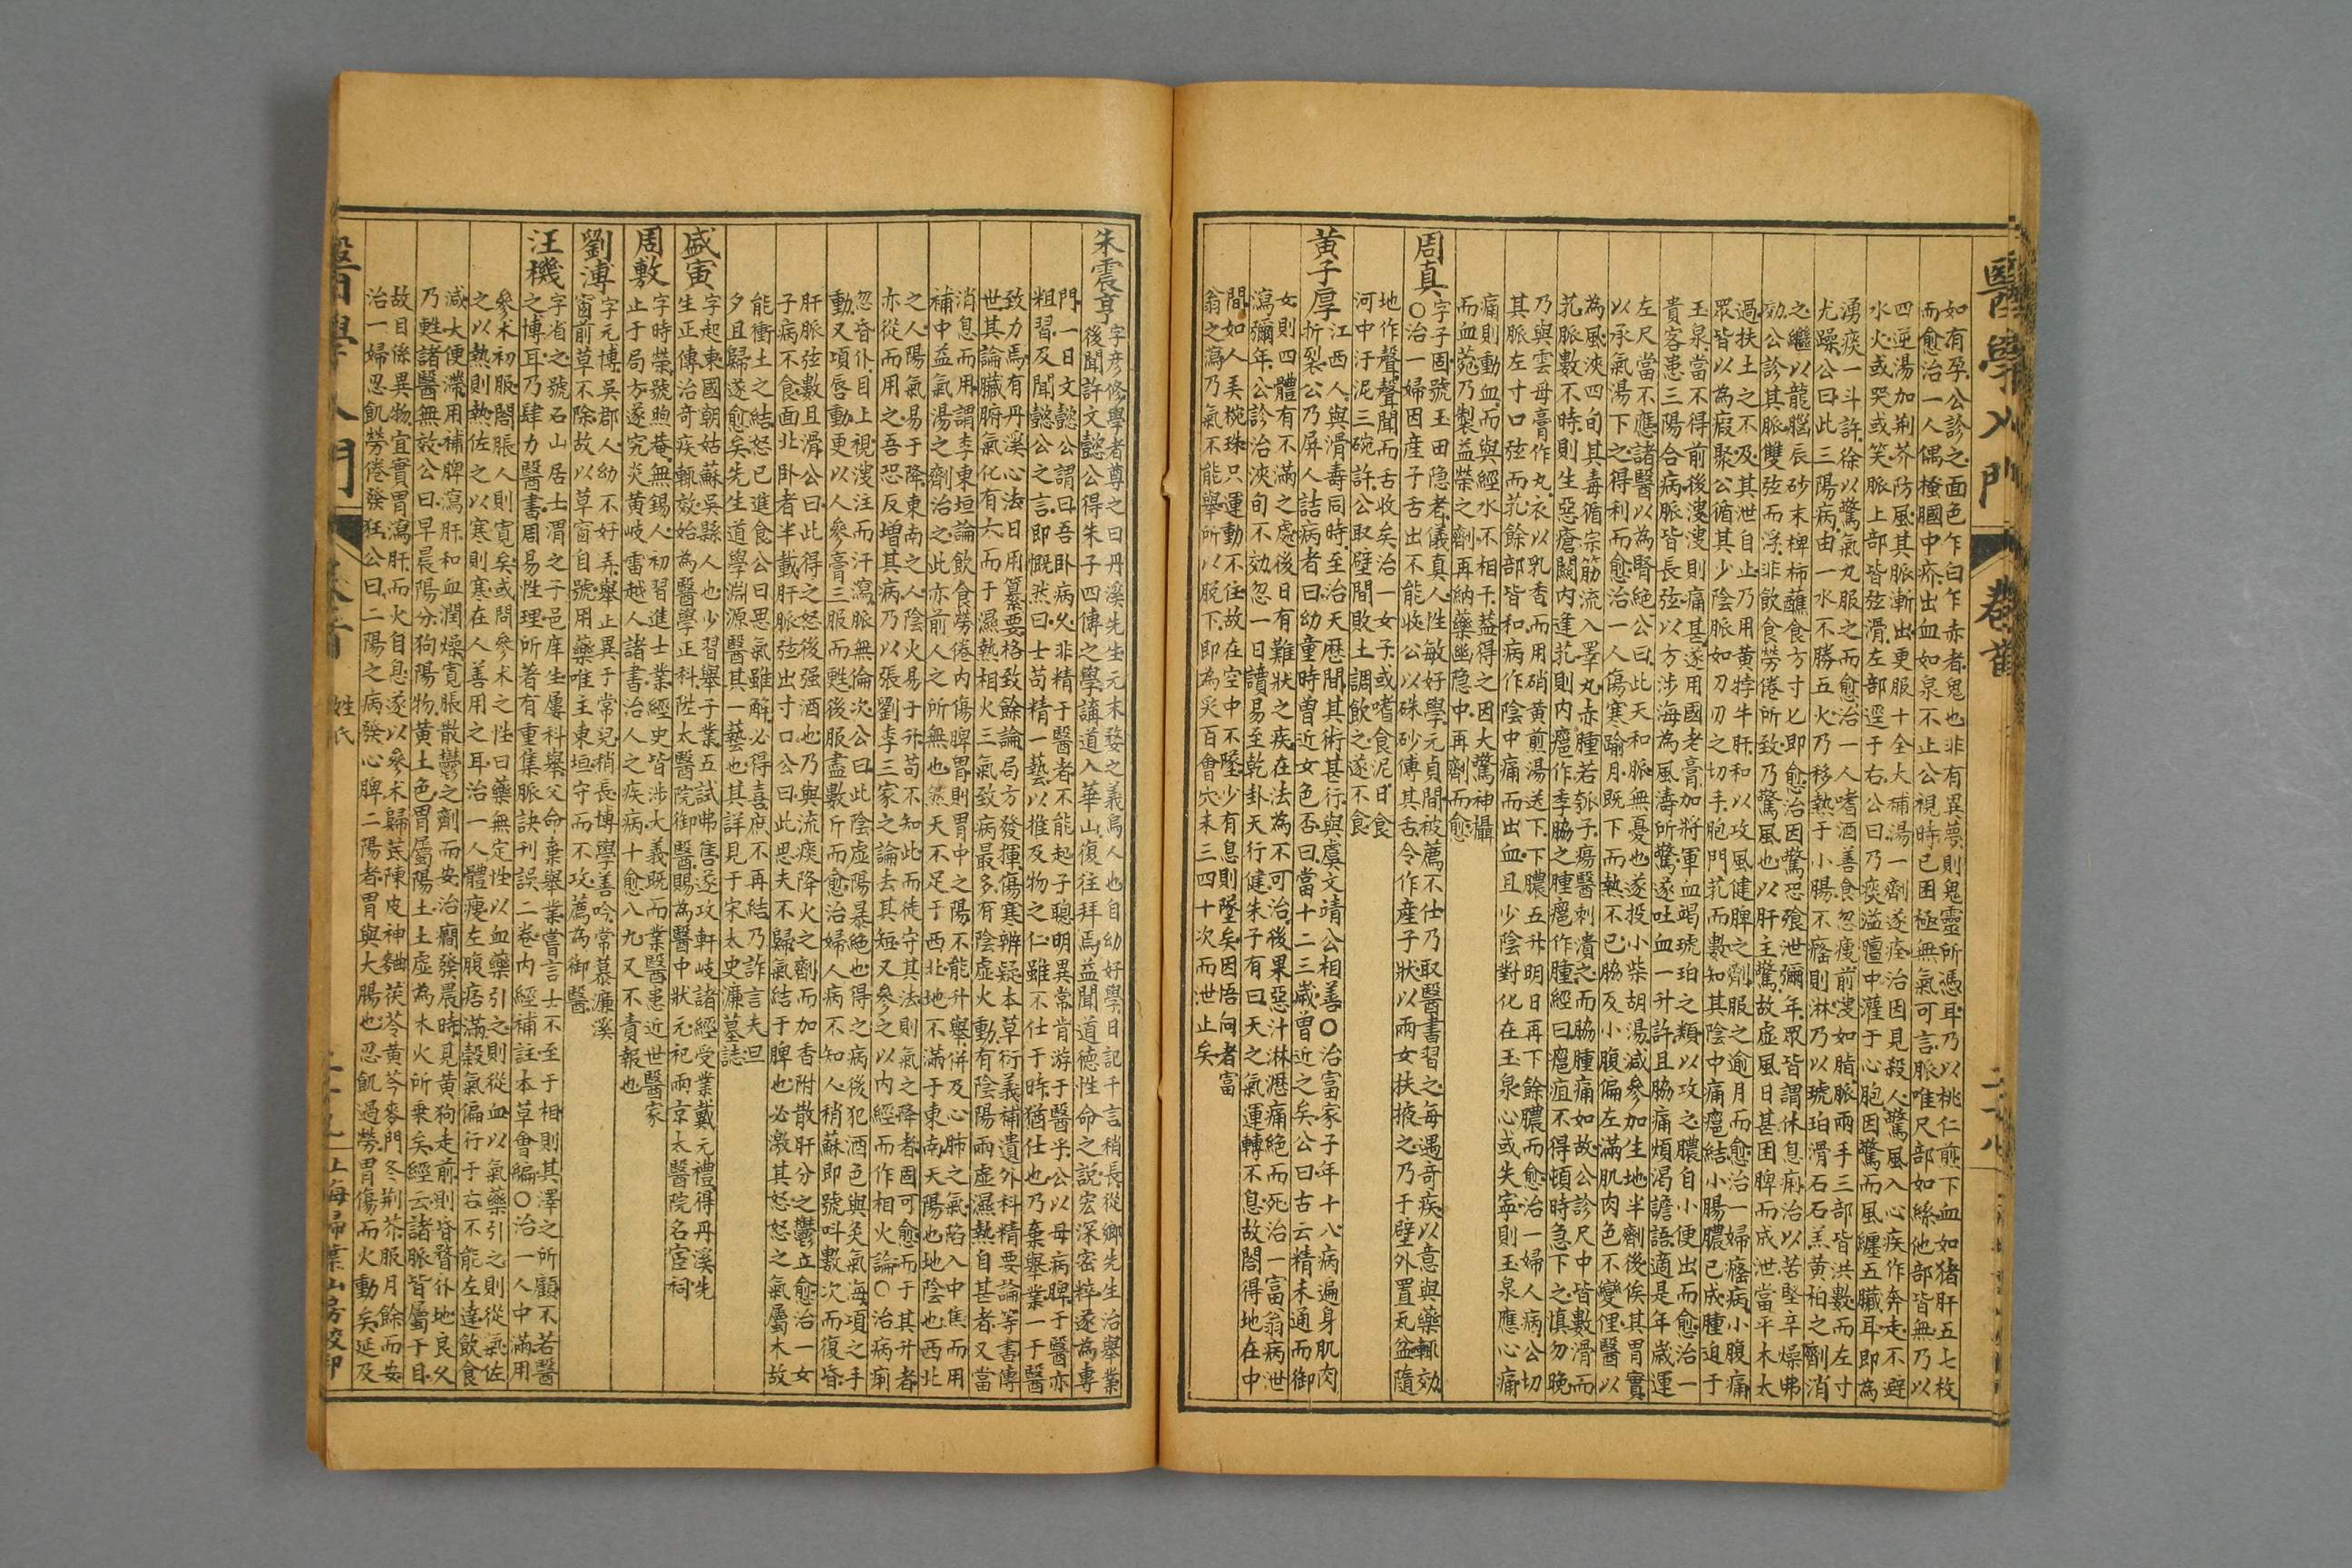 醫學入門 卷首 二十八
如有孕公診之面色乍白乍赤者鬼也非有異夢則鬼靈所憑耳乃以桃仁煎下血如猪肝五七枚
而愈治一人偶搔膕中疥出血如泉不止公視時已困極無氣可言脈唯尺部如絲他部皆無乃以
四逆湯加荆芥防風其脈漸出更服十全大補湯一劑遂痊治因見殺人驚風入心疾作奔走不避
水火或哭或笑脈上部皆弦滑左部逕于右公曰乃痰溢膻中灌于心胞因驚而風纏五臟耳即為
湧痰一斗許徐以驚氣丸服之而愈治一人嗜酒善食忽瘦前溲如脂脈兩手三部皆洪數而左寸
尤躁公曰此三陽病由一水不勝五火乃移熱于小腸不癃則淋乃以琥珀滑石石羔黃柏之劑消
之繼以龍腦辰砂末椑柿蘸食方寸匕即愈治因驚恐飱泄彌年眾皆謂休息痢治以苦堅辛燥弗
効公診其脈雙弦而浮非飲食勞倦所致乃驚風也以肝主驚故虛風日甚困脾而成泄當平木太
過扶土之不及其泄自止乃用黃牸牛肝和以攻風健脾之劑服之逾月而愈治一婦癃病小腹痛
眾皆以為瘕聚公循其少陰脈如刀刃之切手胞門芤而數知其陰中痛癰結小腸膿已成腫迫于
玉泉當不得前後溲溲則痛甚遂用國老膏加將軍血竭琥珀之類以攻之膿自小便出而愈治一
貴客患三陽合病脈皆長弦以方涉海為風濤所驚遂吐血一升許且脇痛煩渴譫語適是年歲運
左尺當不應諸醫以為腎絕公曰此天和脈無憂也遂投小柴胡湯減參加生地半劑後俟其胃實
以承氣湯下之得利而愈治一人傷寒踰月既下而熱不已脇及小腹偏左滿肌肉色不變俚醫以
為風浹四旬其毒循宗筋流入睪丸赤腫若瓠子瘍醫刺潰之而脇腫痛如故公診尺中皆數滑而
芤脈數不時則生惡瘡關內逢芤則內癰作季脇之腫癰作腫經曰癰疽不得頓時急下之慎勿晚
乃與雲母膏作丸衣以乳香而用硝黃煎湯送下下膿五升明日再下餘膿而愈治一婦人病公切
其脈左寸口弦而芤餘部皆和病作陰中痛而出血且少陰對化在玉泉心或失寧則玉泉應心痛
痛則動血而與經水不相干益得之因大驚神攝
而血菀乃製益榮之劑再納藥幽隱中再劑而愈
周真
字子固號玉田隱者儀真人性敏好學元貞間被薦不仕乃取醫書習之每遇奇疾以意與藥輒効
○治一婦因産子舌出不能收公以硃砂傅其舌令作産子狀以兩女扶掖之乃于壁外置瓦盆隨
地作聲聲聞而舌收矣治一女子或嗜食泥日食
河中汙泥三碗許公取壁間敗土調飲之遂不食
黄子厚
江西人與滑壽同時至治天歷間其術甚行與虞文靖公相善○治富家子年十八病遍身肌肉
折裂公乃屏人詰病者曰幼童時曾近女色否曰當十二三歲曾近之矣公曰古云精未通而御
女則四體有不滿之處後日有難狀之疾在法為不可治後果惡汁淋瀝痛絕而死治一富翁病世
瀉彌年公診治浹旬不効忽一日讀易至乾卦天行健朱子有曰天之氣運轉不息故閣得地在中
間如人弄椀珠只運動不住故在空中不墜少有息則墜矣因悟向者富
翁之瀉乃氣不能舉所以脫下即為灸百會穴未三四十次而泄止矣
朱震亨
字彦修學者尊之曰丹溪先生元末婺之義烏人也自幼好學日記千言稍長從鄉先生治舉業
後聞許文懿公得朱子四傳之學講道八華山復往拜焉益聞道德性命之説宏深密粹遂為專
門一日文懿公謂曰吾卧病久非精于醫者不能起子聰明異常肯游于醫乎公以母病脾于醫亦
粗習及聞懿公之言即慨然曰士苟精一藝以推及物之仁雖不仕于時猶仕也乃棄舉業一于醫
致力焉有丹溪心法日用纂要格致餘論局方發揮傷寒辨疑本草衍義補遺外科精要論等書傳
世其論臟腑氣化有六而于濕熱相火三氣致病最多有陰虛火動有陰陽兩虛濕熱自甚者又當
消息而用謂李東垣論飲食勞倦內傷脾胃則胃中之陽不能升舉併及心肺之氣陷入中焦而用
補中益氣湯之劑治之此亦前人之所無也然天不足于西北地不滿于東南天陽也地陰也西北
之人陽氣易于降東南之人陰火易于升苟不知此而徒守其法則氣之降者固可愈而于其升者
亦從而用之吾恐反增其病乃以張劉李三家之論去其短又參之以內經而作相火論○治病痢
忽昏仆目上視溲注而汗瀉脈無倫次公曰此陰虛陽暴絕也得之病後犯酒色與灸氣海頃之手
動又頃唇動更以人參膏三服而甦後服盡數斤而愈治婦人病不知人稍蘇即號呌數次而復昏
肝脈弦數且滑公曰此得之怒後强酒也乃與流痰降火之劑而加香附散肝分之鬱立愈治一女
子病不食面北卧者半載肝脈弦出寸口公曰此思夫不歸氣結于脾也必激其怒怒之氣屬木故
能衝土之結怒已進食公曰思氣雖解必得喜庶不再結乃詐言夫旦
夕且歸遂愈矣先生道學淵源醫其一藝也其詳見于宋太史濂墓誌
盛寅
字起東國朝姑蘇吳縣人也少習舉子業五試弗售遂攻軒岐諸經受業戴元禮得丹溪先
生正傳治奇疾輒效始為醫學正科陞太醫院御醫賜為醫中狀元祀兩京太醫院名宦祠
周敷
字時榮號煦菴無錫人初習進士業經史皆涉大義既而業醫患近世醫家
止于局方遂究炎黃岐雷越人諸書治人之疾病十愈八九又不責報也
劉溥
字元博吳郡人幼不好弄舉止異于常兒稍長博學善吟常慕濂溪
窗前草不除故以草窗自號用藥唯主東垣守而不攻薦為御醫
汪機
字省之號石山居士渭之子邑庠生屢科舉父命棄舉業嘗言士不至于相則其澤之所顧不若醫
之博耳乃肆力醫書周易性理所著有重集脈訣刊誤二卷內經補註本草會編○治一人中滿用
參朮初服悶脹人則寬矣或問參朮之性曰藥無定性以血藥引之則從血以氣藥引之則從氣佐
之以熱則熱佐之以寒則寒在人善用之耳治一人體瘦左腹痞滿穀氣偏行于右不能左達飲食
減大便滯用補脾瀉肝和血潤燥寬脹散鬱之劑而安治癎發晨時見黃狗走前則昏瞀仆地良久
乃甦諸醫無效公曰早晨陽分狗陽物黃土色胃屬陽土土虛為木火所乘矣經云諸脈皆屬于目
故目係異物宜實胃瀉肝而火自息遂以參朮歸芪陳皮神麯茯苓黃芩麥門冬荆芥服月餘而安
治一婦忍飢勞倦發狂公曰二陽之病發心脾二陽者胃與大腸也忍飢過勞胃傷而火動矣延及
醫學入門 卷首 姓氏 上海掃葉山房校印